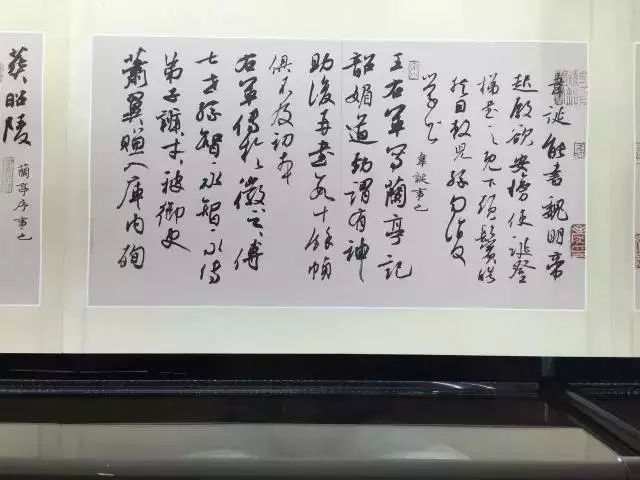 韋誕能書魏明帝
起殿欲安榜使誕登
梯書之既下頭鬢皓
然因敕兒孫勿復
學書 韋誕事也
王右軍寫蘭亭記
韶媚遒勁謂有神
助後再書數十餘幀
俱不及初本
右軍傳於徽之傳
七世孫智永智永傳
弟子辨才被御史
蕭翼賺入庫內殉
葬昭陵 蘭亭序事也